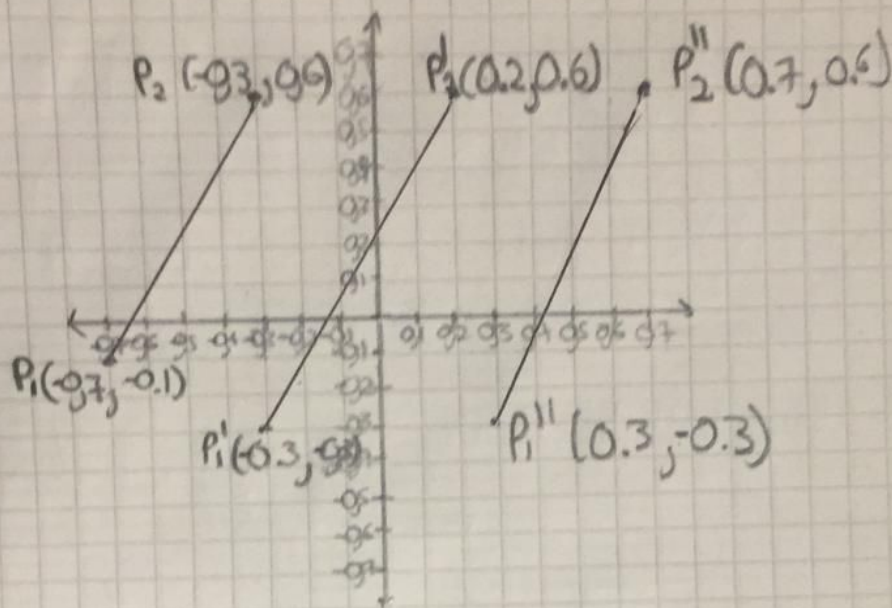 P₂ (-0,3, 0,6) P₂' (0.2, 0.6) P₂'' (0.7, 0.6)
0,7
0,6
0,5
0,4
0,3
0,2
0,1
-0,7 -0,6 -0,5 -0,4 -0,3 -0,2 -0,1 0,1 0,2 0,3 0,4 0,5 0,6 0,7
-0,1
P₁(-0,7, -0.1)
-0,2
-0,3
P₁'(-0.3, -0,3) P₁'' (0.3, -0.3)
-0,5
-0,6
-0,7